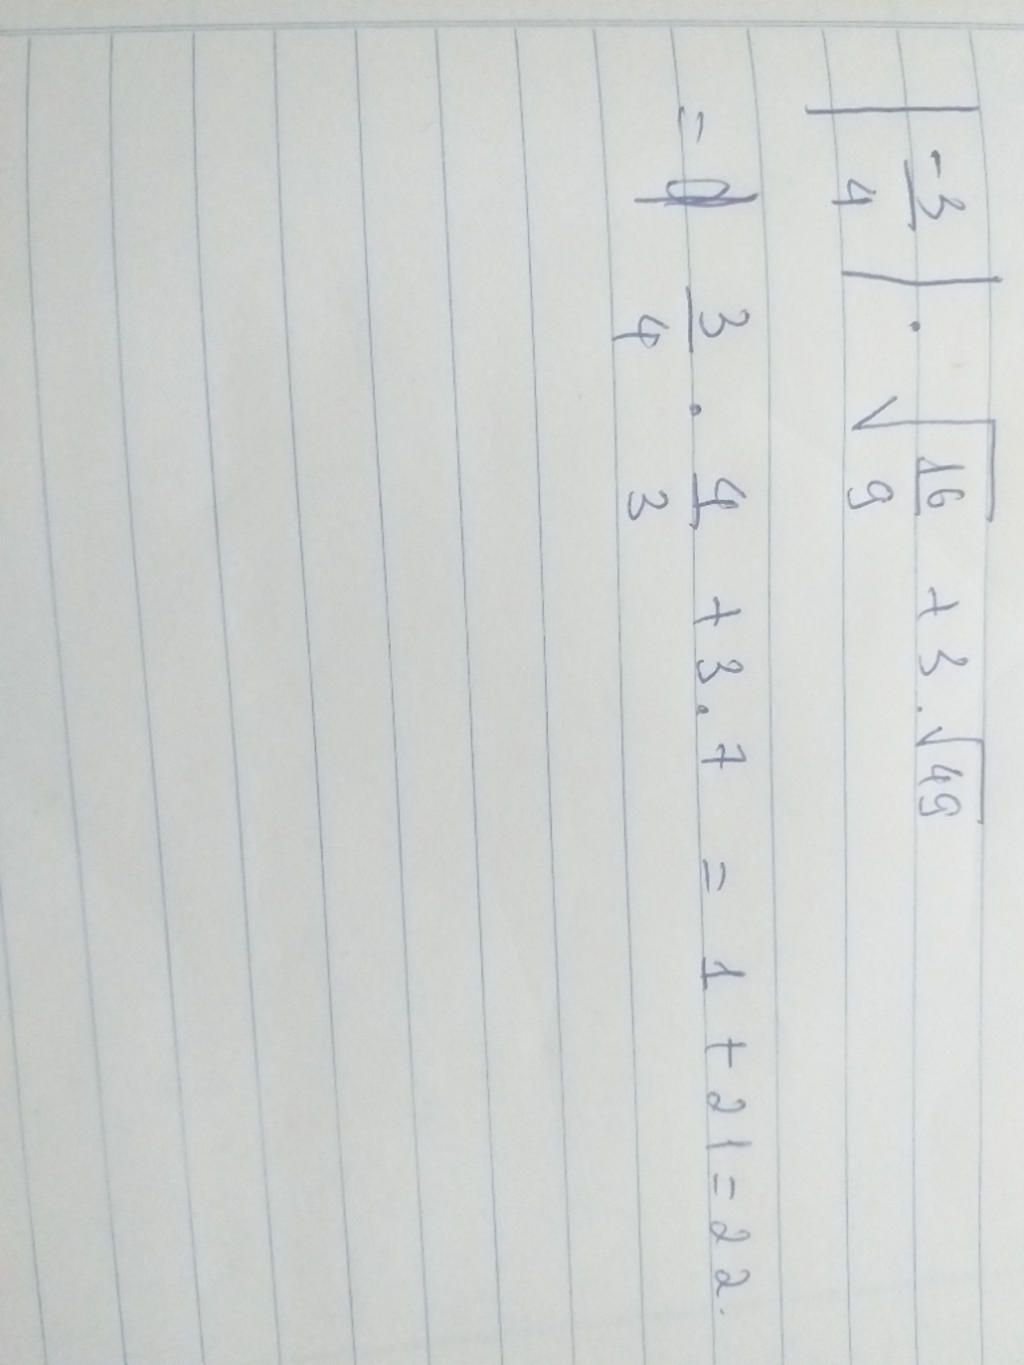 |-3/4| . √16/9 + 3 . √49
= 3/4 . 4/3 + 3 . 7 = 1 + 21 = 22.